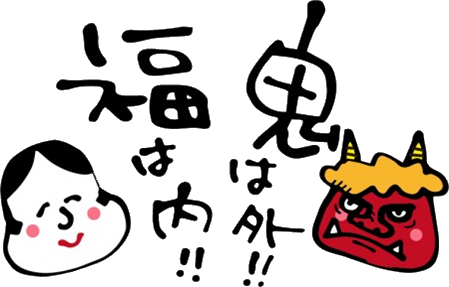 鬼は外!!
福は内!!